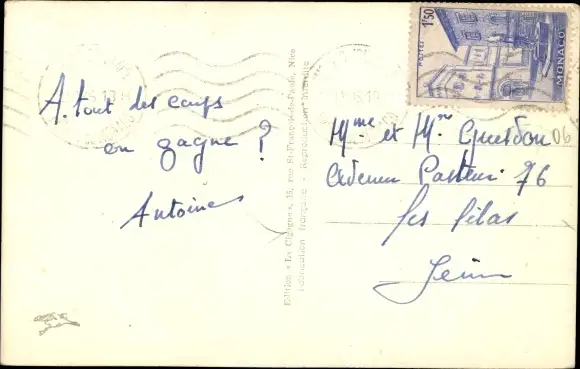 A. tout des coups
on gagne ?
Antoine
Edition « La Cigogne », 15, rue St-François-de-Paule, Nice
Fabrication française - Reproduction interdite
1f50
POSTES
MONACO
Mme et Mr Guesdon 06
Pasteur 76
Les Lilas
Seine